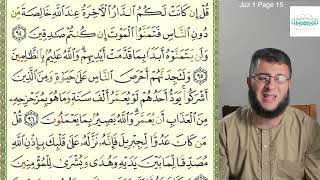 Juz 1 Page 15
قُلْ إِن كَانَتْ لَكُمُ الدَّارُ الْآخِرَةُ عِندَ اللَّهِ خَالِصَةً مِّن
دُونِ النَّاسِ فَتَمَنَّوُا الْمَوْتَ إِن كُنتُمْ صَادِقِينَ ٩٤
وَلَن يَتَمَنَّوْهُ أَبَدًا بِمَا قَدَّمَتْ أَيْدِيهِمْ وَاللَّهُ عَلِيمٌ بِالظَّالِمِينَ
٩٥ وَلَتَجِدَنَّهُمْ أَحْرَصَ النَّاسِ عَلَىٰ حَيَاةٍ وَمِنَ الَّذِينَ
أَشْرَكُوا يَوَدُّ أَحَدُهُمْ لَوْ يُعَمَّرُ أَلْفَ سَنَةٍ وَمَا هُوَ بِمُزَحْزِحِهِ
مِنَ الْعَذَابِ أَن يُعَمَّرَ وَاللَّهُ بَصِيرٌ بِمَا يَعْمَلُونَ ٩٦ قُلْ
مَن كَانَ عَدُوًّا لِّجِبْرِيلَ فَإِنَّهُ نَزَّلَهُ عَلَىٰ قَلْبِكَ بِإِذْنِ اللَّهِ
مُصَدِّقًا لِّمَا بَيْنَ يَدَيْهِ وَهُدًى وَبُشْرَىٰ لِلْمُؤْمِنِينَ